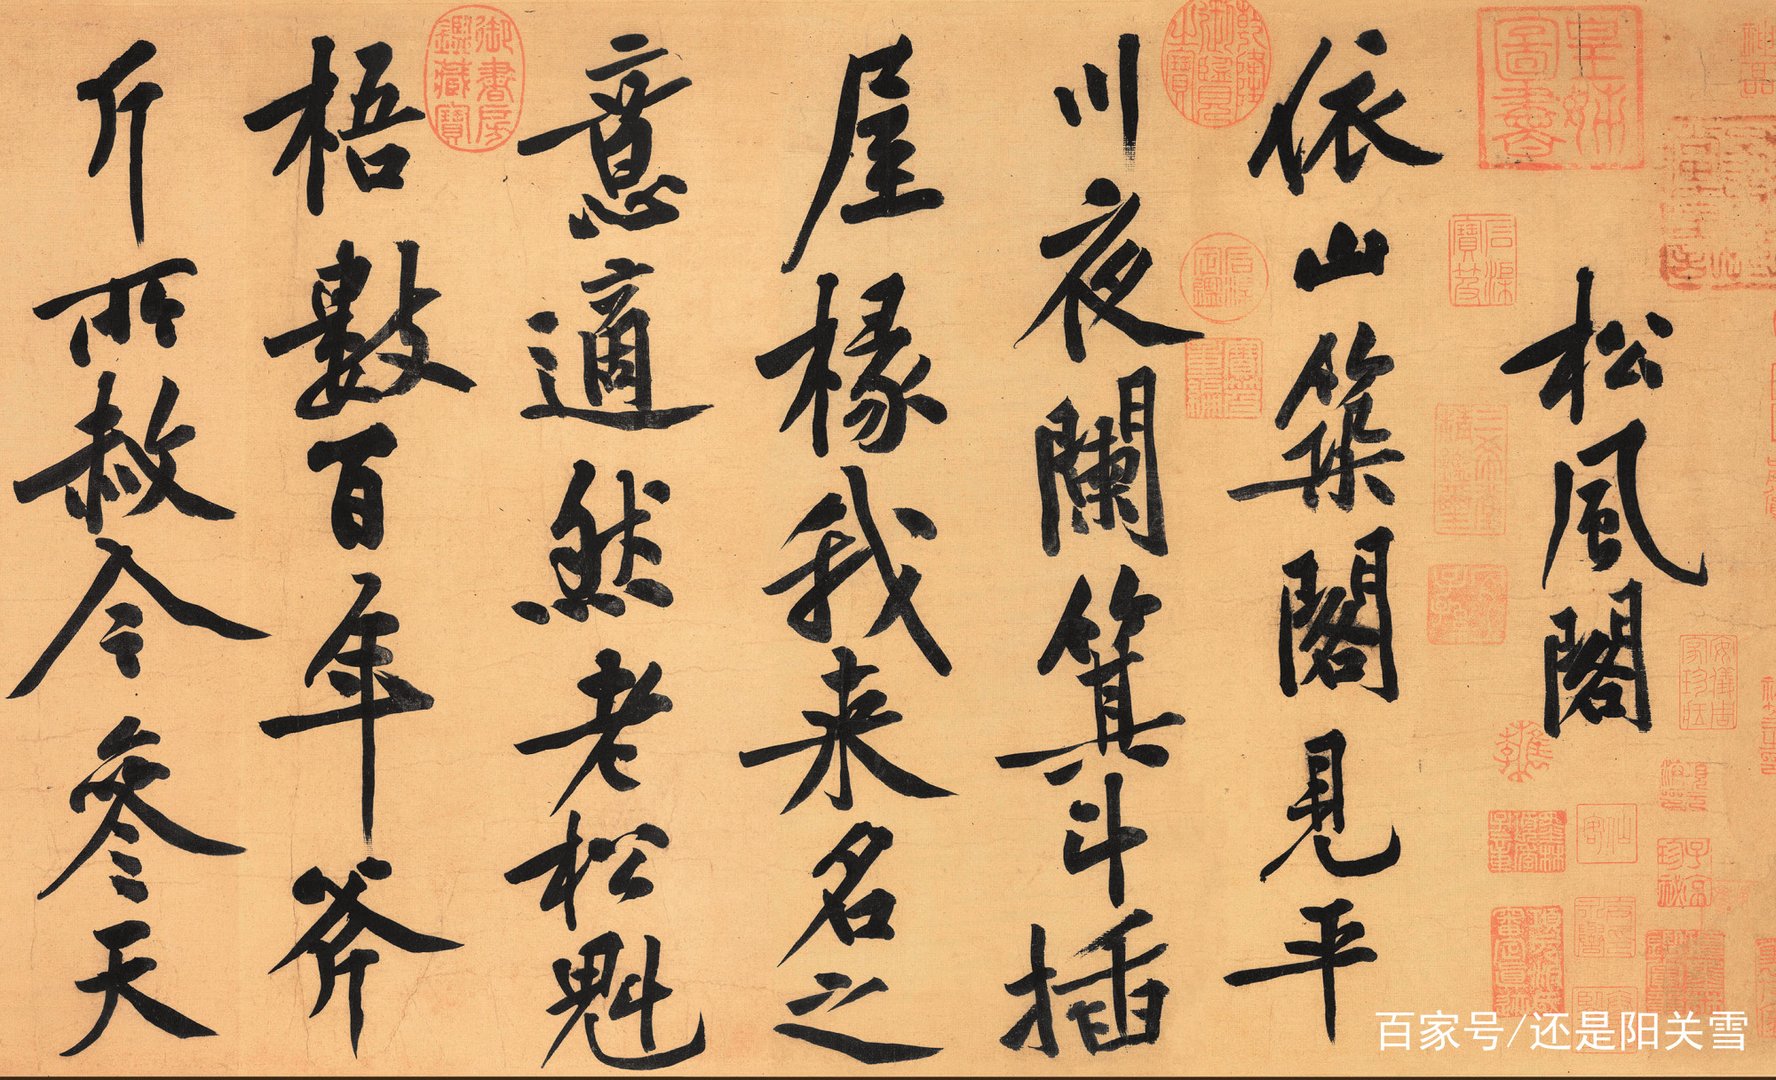 松風閣
依山築閣見平
川夜闌箕斗插
屋椽我来名之
意適然老松魁
梧數百年斧
斤所赦令參天
御書房鑑藏寶
百家号/还是阳关雪